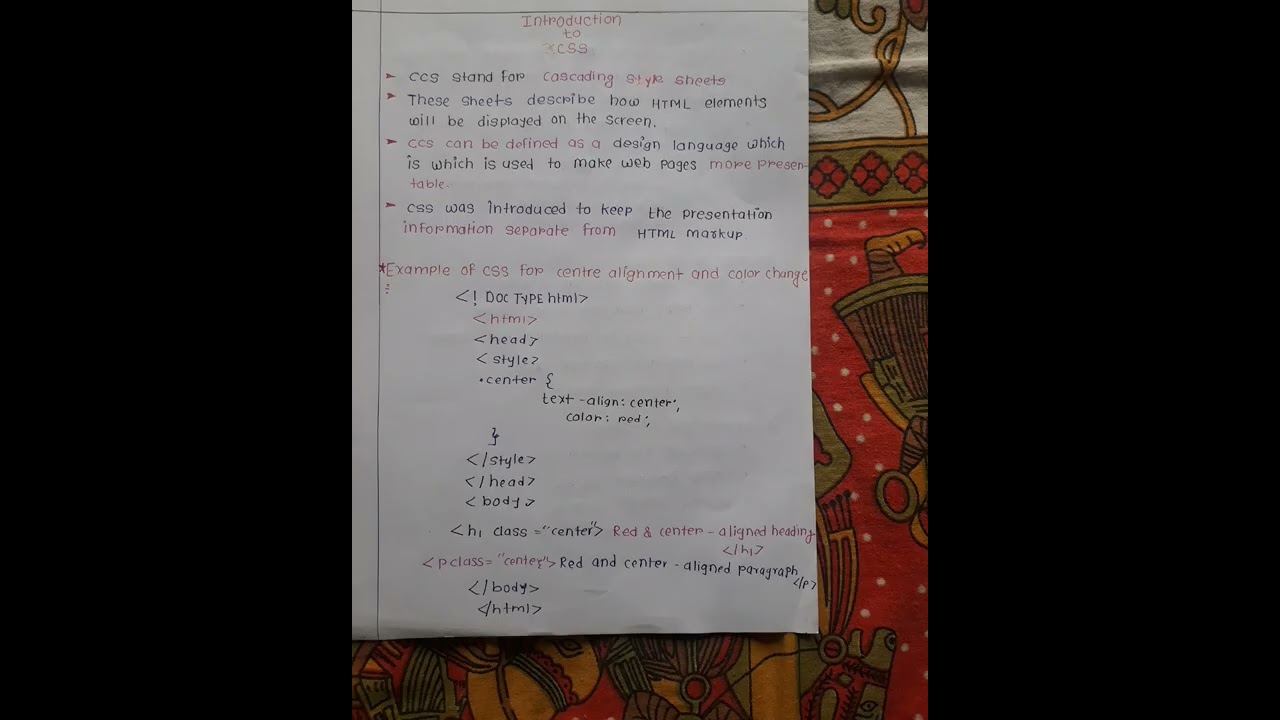 Introduction
to
CSS
➤ CCS stand for cascading style sheets
➤ These sheets describe how HTML elements
will be displayed on the screen.
➤ CCS can be defined as a design language which
is which is used to make web pages more presen-
table.
➤ CSS was introduced to keep the presentation
information separate from HTML markup.
*Example of CSS for centre alignment and color change
:
<! DOC TYPE html>
<html>
<head>
<style>
.center {
text-align: center;
color: red;
}
</style>
</head>
<body>
<h1 class ="center"> Red & center-aligned heading
</h1>
<pclass="center"> Red and center-aligned paragraph
</p>
</body>
</html>